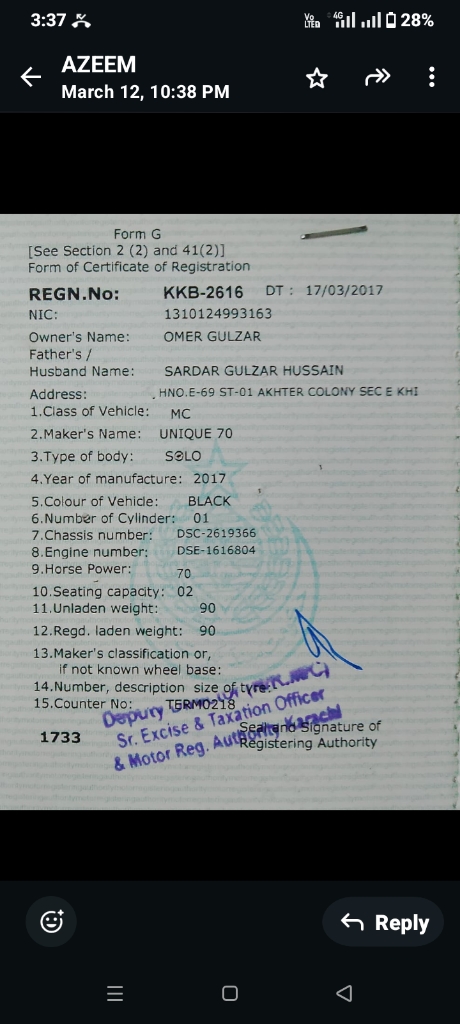 3:37
Vo
LTED
4G
28%
AZEEM
March 12, 10:38 PM
Form G
[See Section 2 (2) and 41(2)]
Form of Certificate of Registration
REGN.No: KKB-2616 DT : 17/03/2017
NIC: 1310124993163
Owner's Name: OMER GULZAR
Father's /
Husband Name: SARDAR GULZAR HUSSAIN
Address: HNO.E-69 ST-01 AKHTER COLONY SEC E KHI
1.Class of Vehicle: MC
2.Maker's Name: UNIQUE 70
3.Type of body: SOLO
4.Year of manufacture: 2017
5.Colour of Vehicle: BLACK
6.Number of Cylinder: 01
7.Chassis number: DSC-2619366
8.Engine number: DSE-1616804
9.Horse Power: 70
10.Seating capacity: 02
11.Unladen weight: 90
12.Regd. laden weight: 90
13.Maker's classification or,
if not known wheel base:
14.Number, description size of tyre:
15.Counter No: TERM0218
Deputy
Sr. Excise & Taxation Officer
& Motor Reg. Authority Karachi
1733
Seal and Signature of
Registering Authority
Reply